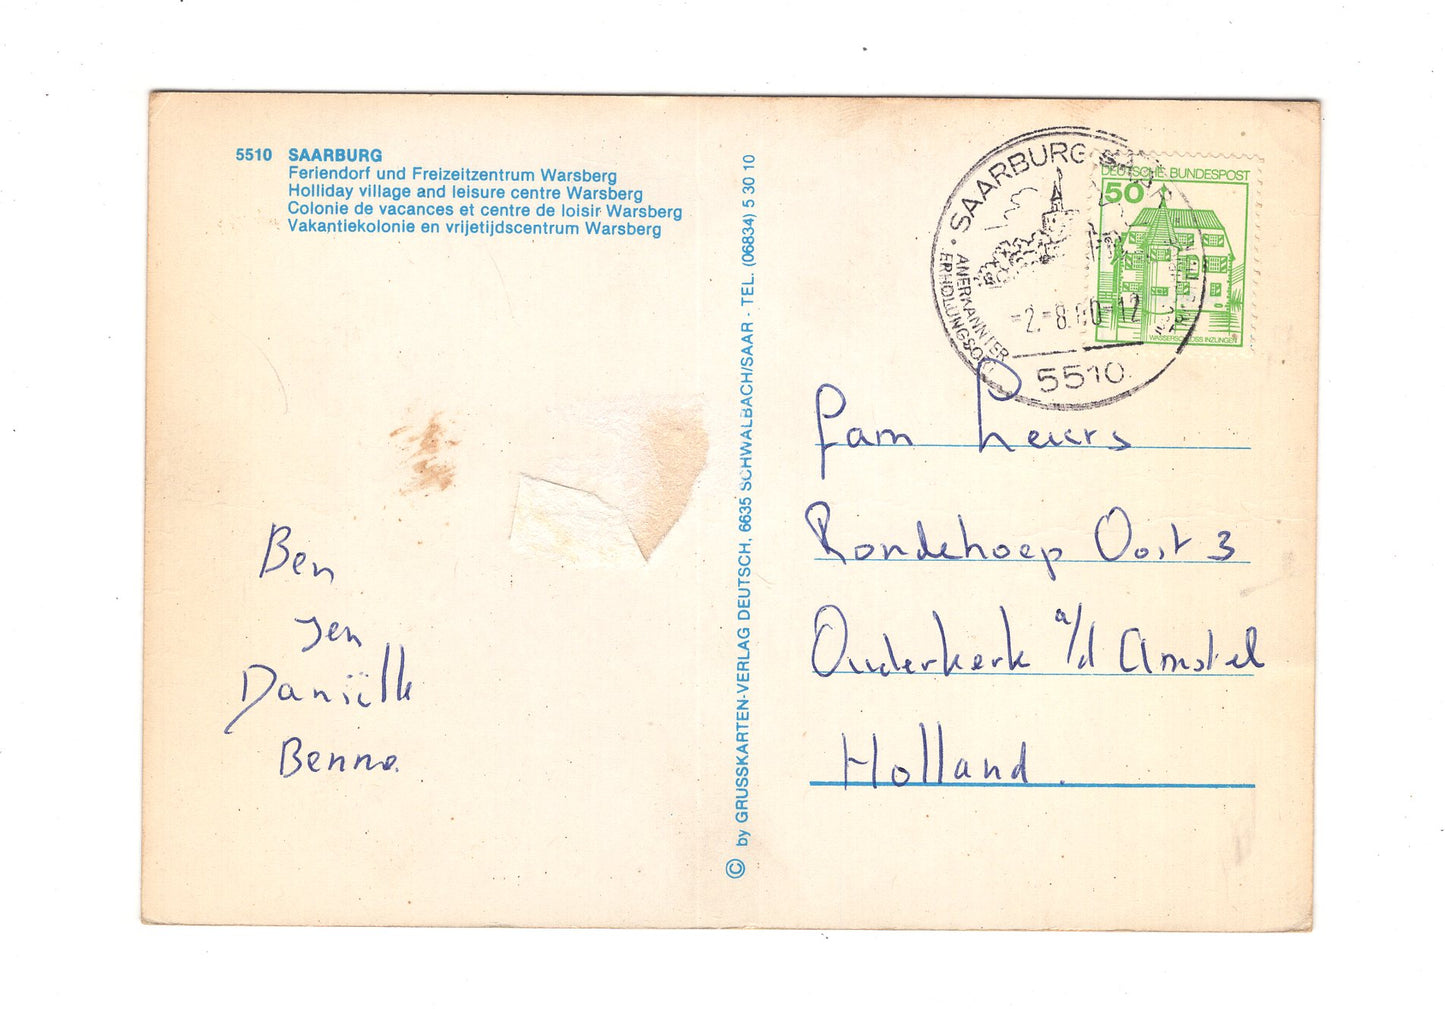 5510 SAARBURG
Feriendorf und Freizeitzentrum Warsberg
Holliday village and leisure centre Warsberg
Colonie de vacances et centre de loisir Warsberg
Vakantiekolonie en vrijetijdscentrum Warsberg
Ben
Jen
Daniëlle
Benno.
© by GRUSSKARTEN-VERLAG DEUTSCH, 6635 SCHWALBACH/SAAR - TEL. (06834) 5 30 10
SAARBURG SAAR
ANERKANNTER
ERHOLUNGSORT
-2.-8. 0-12
5510
DEUTSCHE BUNDESPOST
50
WASSERSCHLOSS INZLINGEN
Fam
Rondehoep Oost 3
Ouderkerk a/d Amstel
Holland.